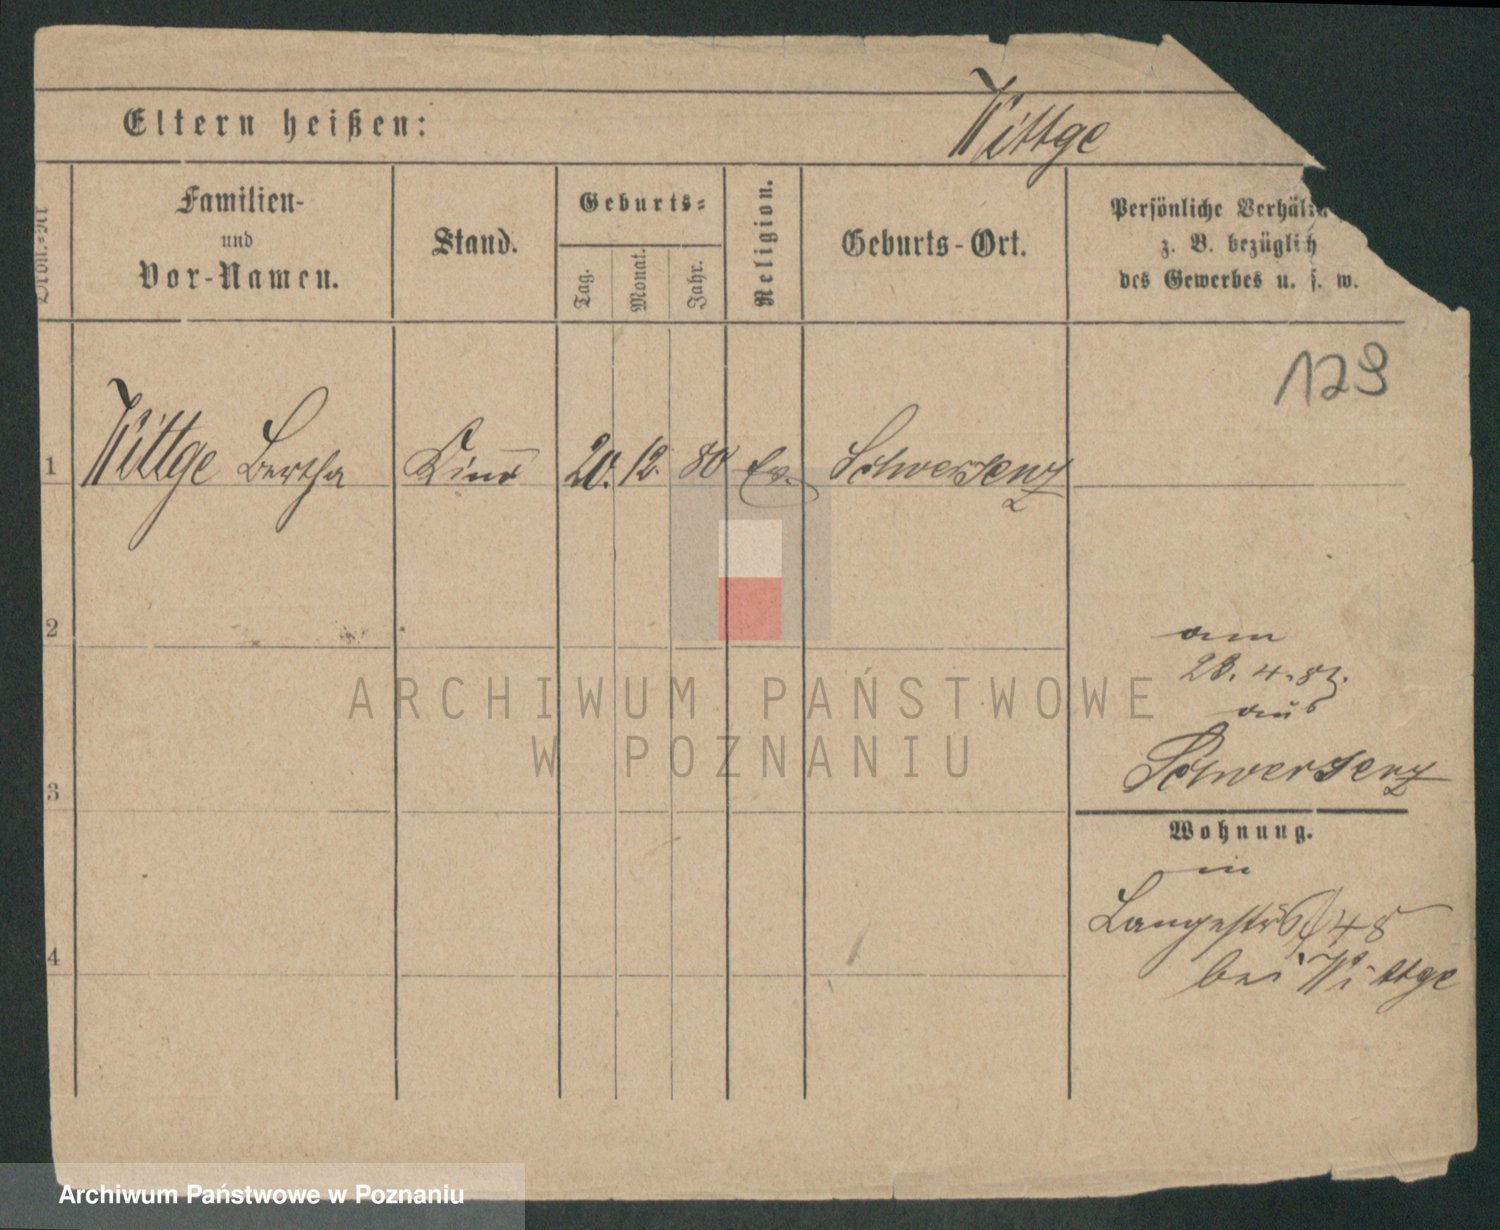 Eltern heißen:
Wittge
Familien-
und
Vor-Namen.
Stand.
Geburts-
Tag.
Monat.
Jahr.
Religion.
Geburts-Ort.
Persönliche Verhält
z. B. bezüglich
des Gewerbes u. s. w.
129
1 Wittge Bertha Kind 20. 12. 80 Ev. Schwersenz
2
am
28. 4. 82.
aus
Schwersenz
3
Wohnung.
in
Langestr 48
bei Wittge
4
ARCHIWUM PAŃSTWOWE
W POZNANIU
Archiwum Państwowe w Poznaniu